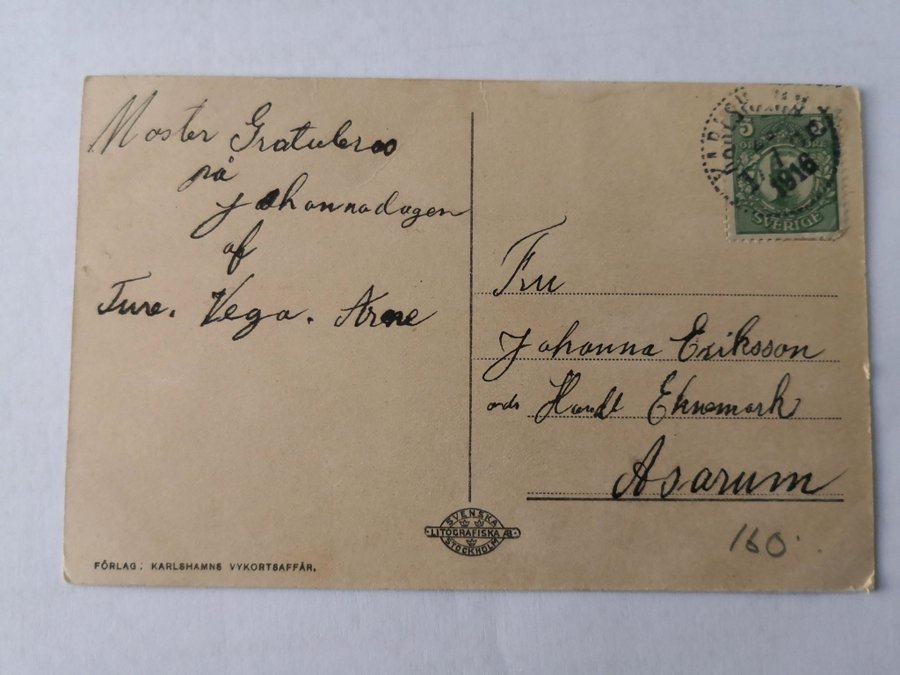 Moster Gratuleras
på
Johannadagen
af
Ture. Vega. Arne
5
ÖRE
SVERIGE
1916
Fru
Johanna Eriksson
ads Handl Eknemark
Asarum
SVENSKA
LITOGRAFISKA AB
STOCKHOLM
160.
FÖRLAG: KARLSHAMNS VYKORTSAFFÄR.